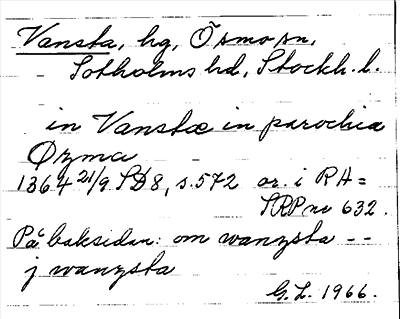 Vansta, hg, Ösmo sn,
Sotholms hd, Stockh. l.
in Vanstæ in parochia
Øzma
1364 21/9 SD8, s. 572 or. i RA =
SRP nr 632.
På baksidan: om wanzsta --
j wanzsta
G.L. 1966.